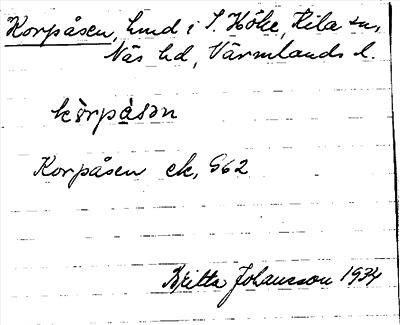 Korpåsen, lund i S. Höke, Kila sn,
Näs hd, Värmlands l.
kò̀rpåsən
Korpåsen ek, G62
Britta Johansson 1934